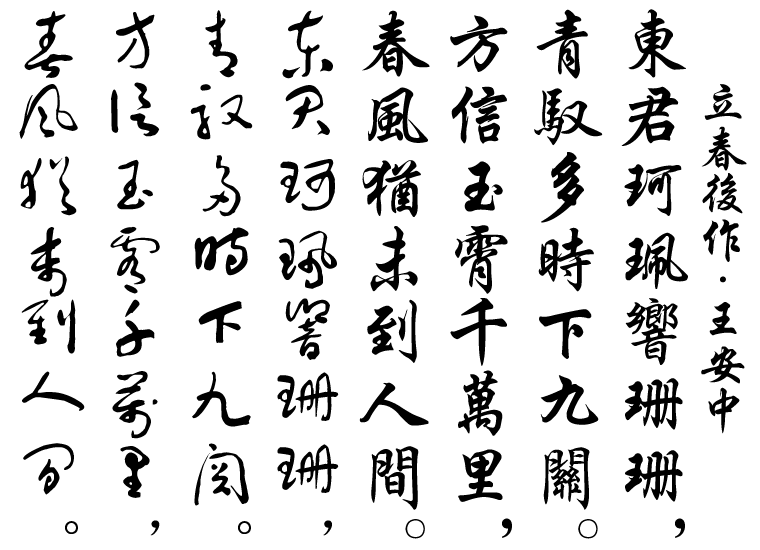 立春後作·王安中
東君珂珮響珊珊,
青馭多時下九關。
方信玉霄千萬里,
春風猶未到人間。
东君珂珮响珊珊,
青驭多时下九关。
方信玉霄千萬里,
春风猶未到人间。